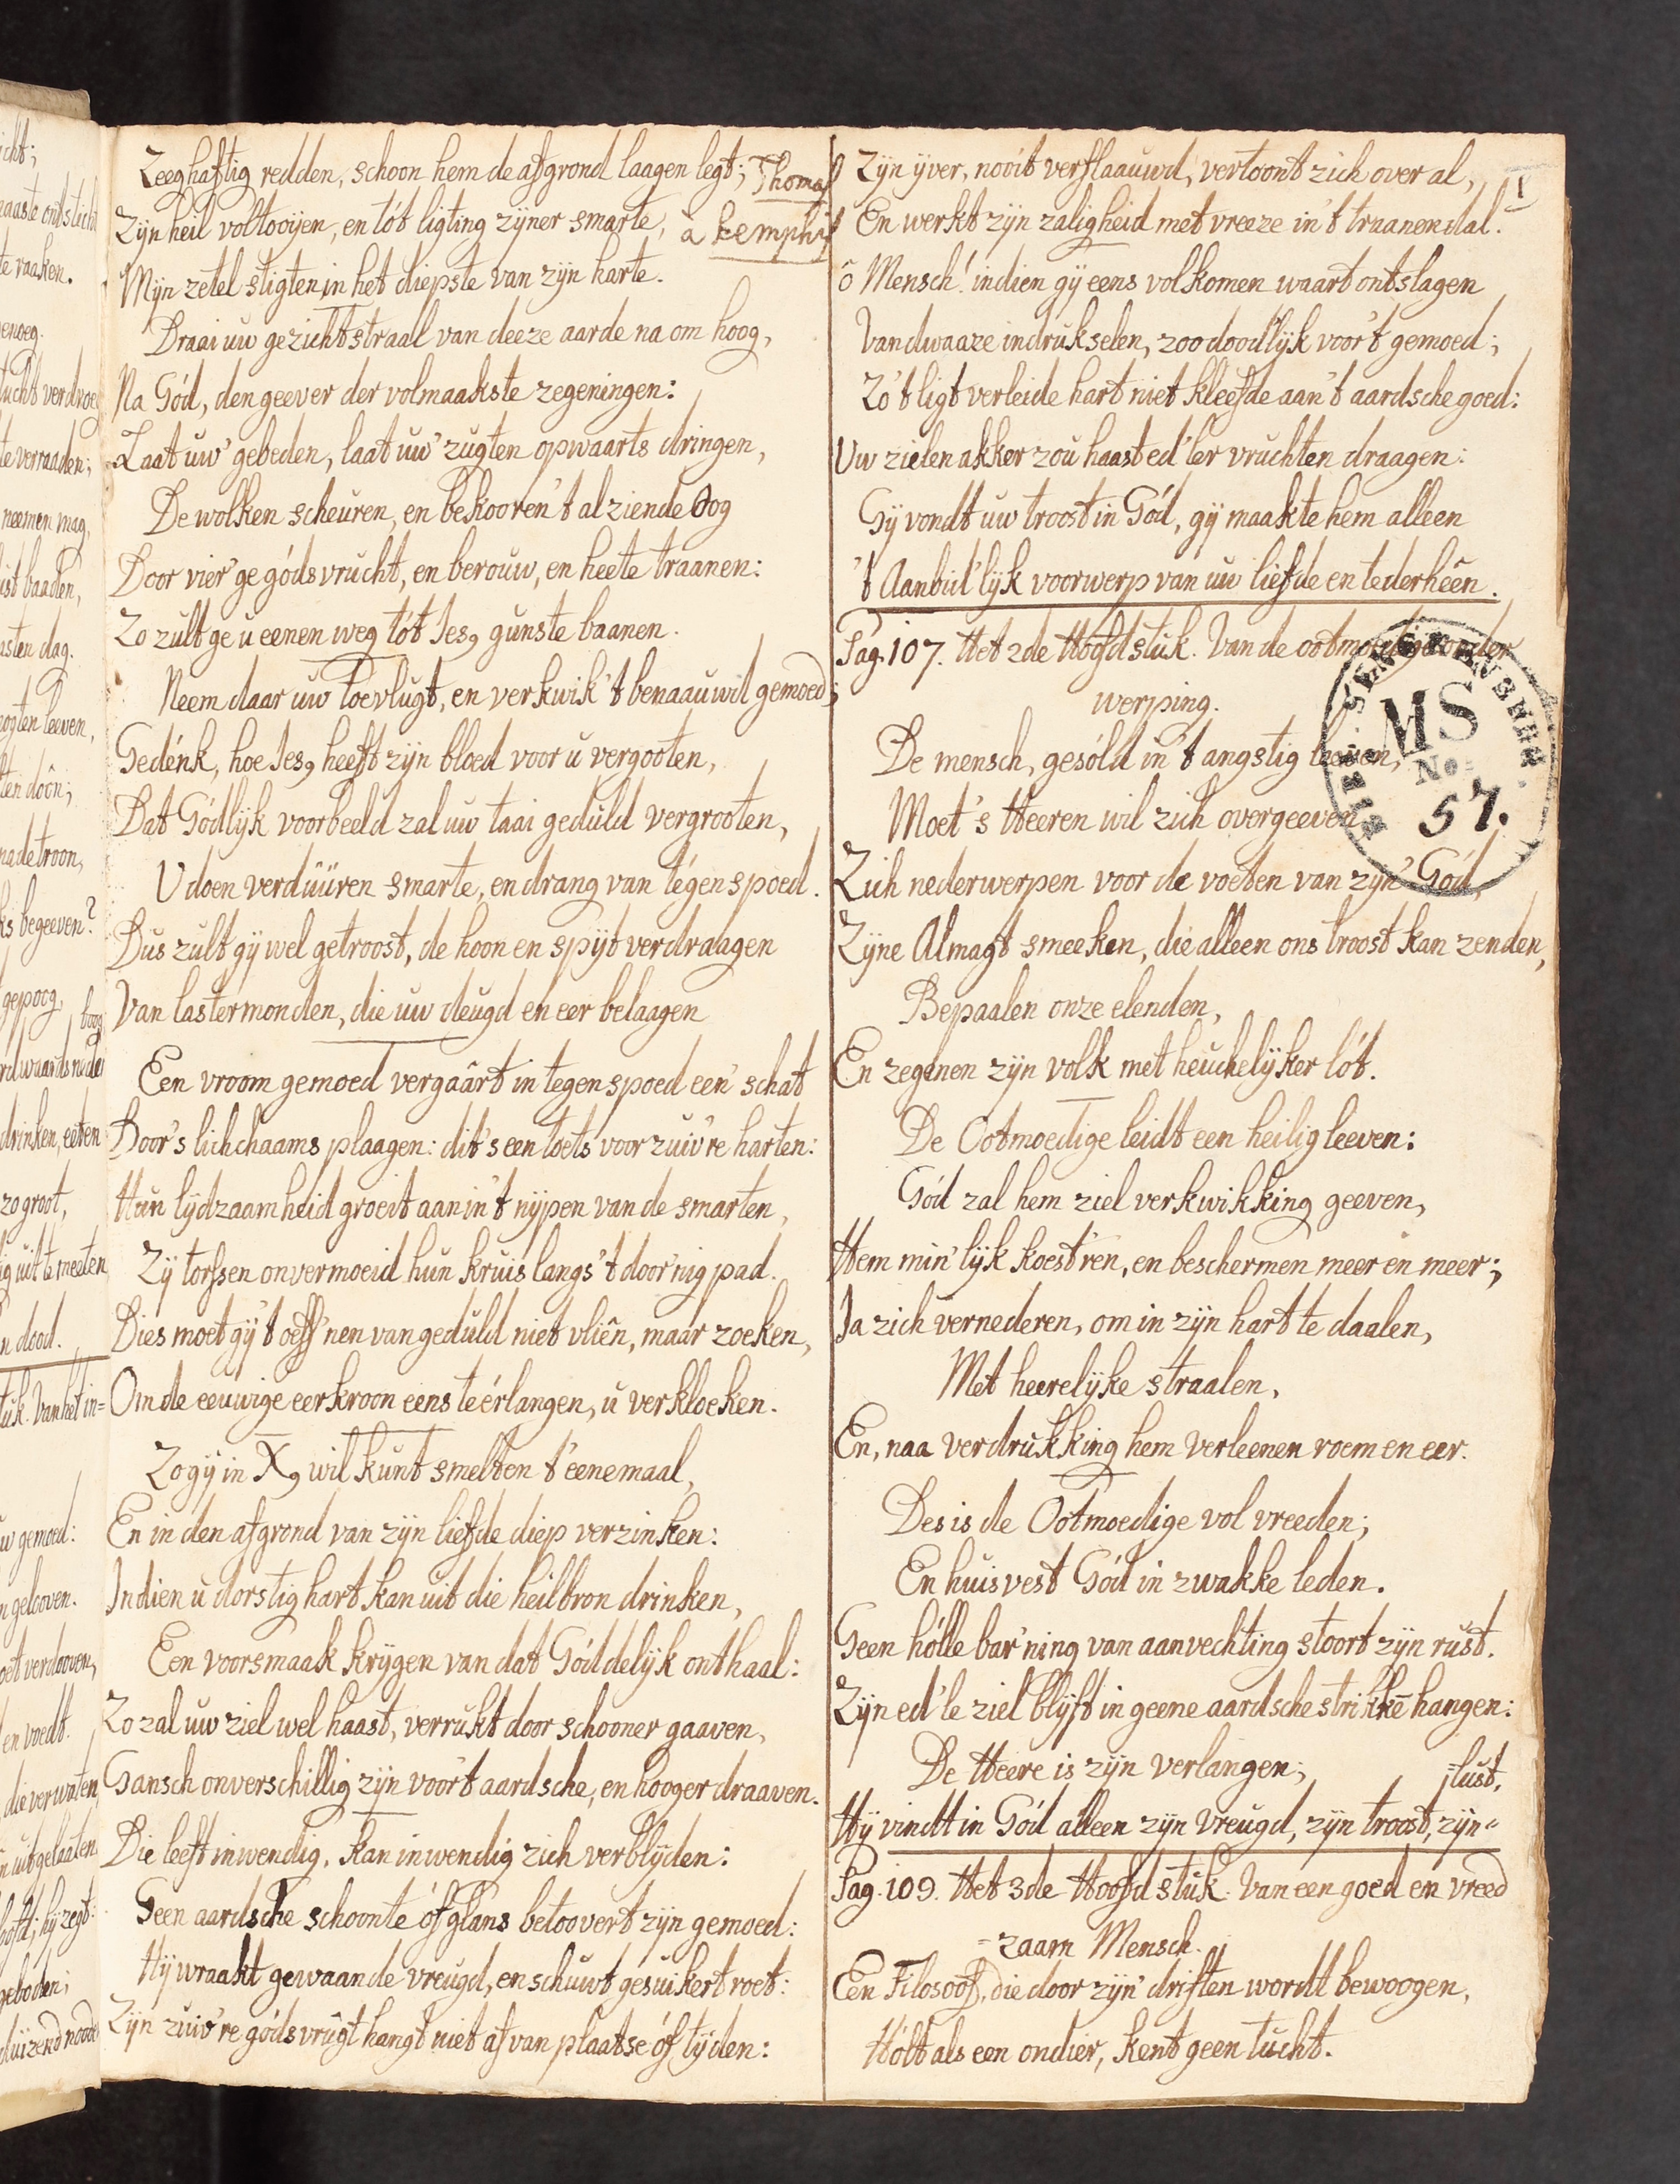 Zeeghaftig redden, schoon hem de afgrond laagen legt;
Thomas
Zijn heil voltooijen, en tót ligting zijner smarte,
à kemphis
Mijn zetel stigten in het diepste van zijn harte.
Draai uw gezichtstraal van deeze aarde na om hoog,
Na Gód, den geever der volmaakste zegeningen:
Laat uw' gebeden, laat uw' zugten opwaarts dringen,
De wolken scheuren, en bekooren 't alziende Oog
Door vier'ge gódsvrucht, en berouw, en heete traanen:
Zo zult ge u eenen weg tót Jes9 gunste baanen.
Neem daar uw toevlugt, en verkwik 't benaauwd gemoed;
Gedénk, hoe Jes9 heeft zijn bloed voor u vergooten,
Dat Gódlijk voorbeeld zal uw taai geduld vergrooten,
U doen verdúúren smarte, en drang van tégenspoed.
Dus zult gij wel getroost, de hoon en spijt verdraagen
Van lastermonden, die uw deugd en eer belaagen
Een vroom gemoed vergaârt in tegenspoed een' schat
Door 's lichchaams plaagen: dit 's een toets voor zuiv're harten:
Hun lijdzaamheid groeit aan in 't nijpen van de smarten,
Zij torssen onvermoeid hun kruis langs 't door'nig pad.
Dies moet gij 't oeff'nen van geduld niet vliên, maar zoeken,
Om de eeuwige eerkroon eens te érlangen, u verkloeken.
Zo gij in X9 wil kunt smelten t'eenemaal,
En in den afgrond van zijn liefde diep verzinken:
Indien u dorstig hart kan uit die heilbron drinken,
Een voorsmaak krijgen van dat Góddelijk onthaal:
Zo zal uw ziel wel haast, verrukt door schooner gaaven,
Gansch onverschillig zijn voor 't aardsche, en hooger draaven.
Die leeft inwendig, kan inwendig zich verblijden:
Geen aardsche schoonte óf glans betoovert zijn gemoed:
Hij wraakt gewaande vreugd, en schuwt gesuikert roet:
Zijn zuiv're gódsvrugt hangt niet af van plaatse óf tijden:
Zijn ijver, nooit verflaauwd, vertoont zich over al,
1
En werkt zijn zaligheid met vreeze in 't traanendal.
ô Mensch! indien gij eens volkomen waart ontslagen
Van dwaaze indrukselen, zoo doodlijk voor 't gemoed;
Zo 't ligt verleide hart niet kleefde aan 't aardsche goed:
Uw zielenakker zou haast ed'ler vruchten draagen:
Gij vondt uw troost in Gód, gij maakte hem alleen
't Aanbid'lijk voorwerp van uw liefde en tederhêên.
Pag. 107. Het 2de Hoofdstuk. Van de ootmoedige onder
werping.
De mensch, gesóld in 't angstig leeven,
Moet 's Heeren wil zich overgeeven
MS
No.
57.
Zich nederwerpen voor de voeten van zijn' Gód,
Zijne Almagt smeeken, die alleen ons troost kan zenden,
Bepaalen onze elenden,
En zegenen zijn volk met heuchelijker lót.
De Ootmoedige leidt een heilig leeven:
Gód zal hem ziel verkwikking geeven,
Hem min'lijk koest'ren, en beschermen meer en meer;
Ja zich vernederen, om in zijn hart te daalen,
Met heerelijke straalen,
En, naa verdrukking hem verleenen roem en eer.
Des is de Ootmoedige vol vreeden;
En huisvest Gód in zwakke leden.
Geen hólle bar'ning van aanvechting stoort zijn rust.
Zijn ed'le ziel blijft in geene aardsche strikkē hangen:
De Heere is zijn verlangen;
=lust,
Hij vindt in Gód alleen zijn vreugd, zijn troost, zijn=
Pag. 109. Het 3de Hoofdstuk. Van een goed en vreed
=zaam Mensch.
Een Filosoof, die door zijn' driften wordt bewoogen,
Hólt als een ondier, kent geen tucht.